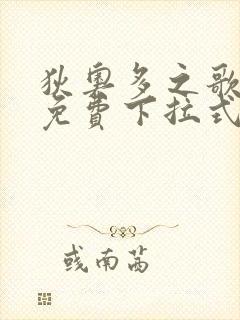 狄奥多之歌
免費下拉式
彧南茜